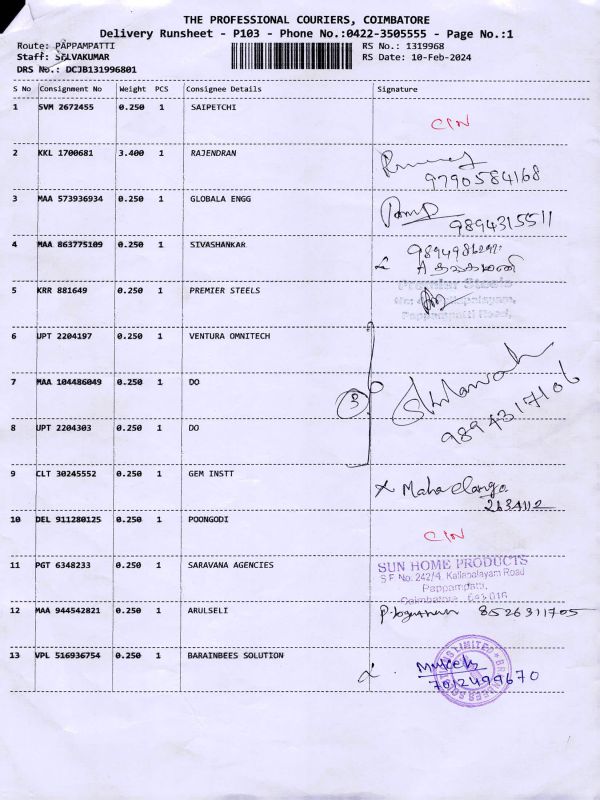 THE PROFESSIONAL COURIERS, COIMBATORE
Delivery Runsheet - P103 - Phone No.:0422-3505555 - Page No.:1
Route: PAPPAMPATTI RS No.: 1319968
Staff: SELVAKUMAR RS Date: 10-Feb-2024
DRS No.: DCJB131996801
S No Consignment No Weight PCS Consignee Details Signature
1 SVM 2672455 0.250 1 SAIPETCHI
CIN
2 KKL 1700681 3.400 1 RAJENDRAN
9790584168
3 MAA 573936934 0.250 1 GLOBALA ENGG
9894315511
4 MAA 863775109 0.250 1 SIVASHANKAR
5 KRR 881649 0.250 1 PREMIER STEELS
Premier Steels
Pappampatti Road,
6 UPT 2204197 0.250 1 VENTURA OMNITECH
7 MAA 104486049 0.250 1 DO
3
9894317106
8 UPT 2204303 0.250 1 DO
9 CLT 30245552 0.250 1 GEM INSTT
Maha elango
2634112
10 DEL 911280125 0.250 1 POONGODI
CIN
11 PGT 6348233 0.250 1 SARAVANA AGENCIES
SUN HOME PRODUCTS
S F No. 242/4, Kallapalayam Road
Pappampatti,
Coimbatore - 641 016
12 MAA 944542821 0.250 1 ARULSELI
8526311705
13 VPL 516936754 0.250 1 BARAINBEES SOLUTION
Mukesh
7012499670